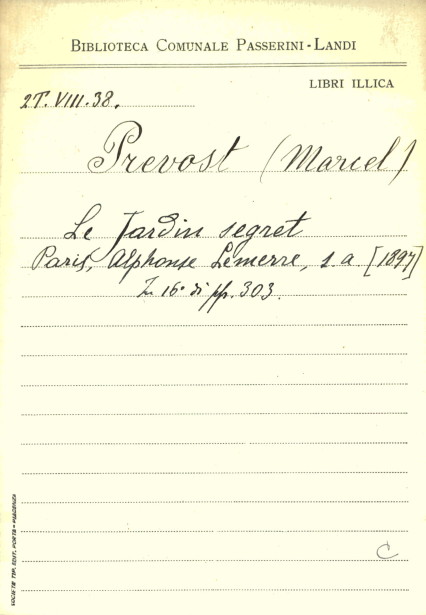 BIBLIOTECA COMUNALE PASSERINI-LANDI
LIBRI ILLICA
27.VIII.38.
Prevost (Marcel)
Le Jardin segret
Paris, Alphonse Lemerre, s.a. [1897]
In 16° di pp. 303.
C
SOCIETÀ TIP. EDIT. PORTA - PIACENZA